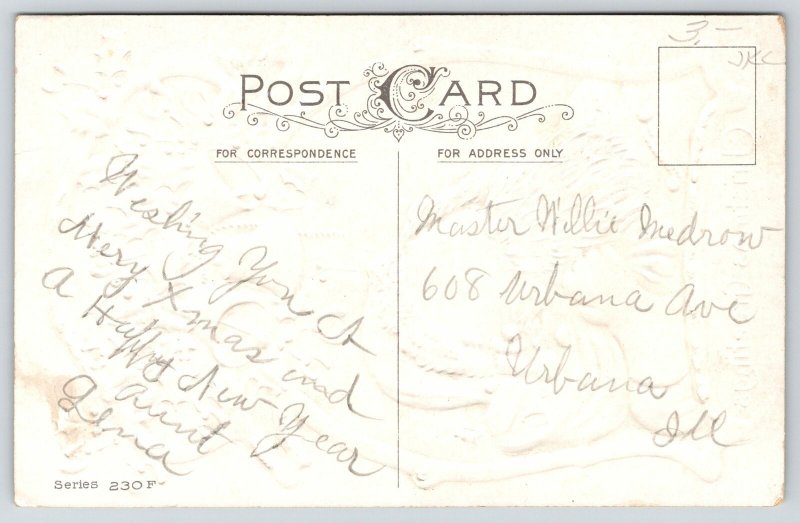 3.-
JKC
POST CARD
FOR CORRESPONDENCE
FOR ADDRESS ONLY
Wishing You A
Mery Xmas and
A Happy New Year
Aunt
Lena
Master Willie Medrow
608 Urbana Ave
Urbana
Ill
Series 230 F